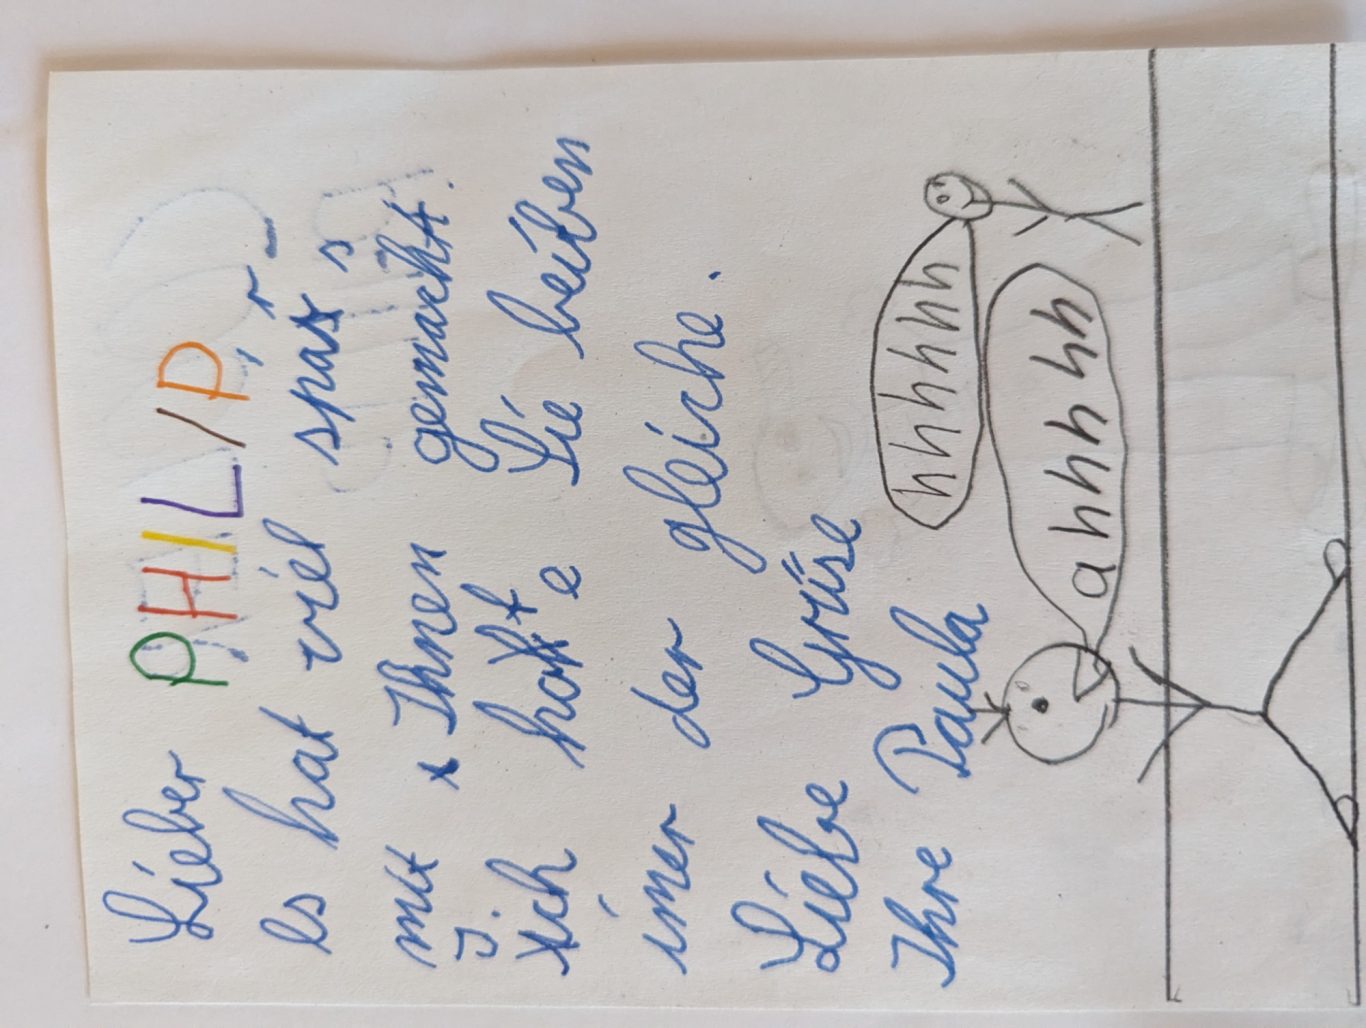 Lieber PHILIP,
es hat viel spas
mit Ihnen gemacht.
Ich hofe Sie beiben
imer der gleiche.
Liebe Grüse
Ihre Paula
hhhhhh
ahhhhhh